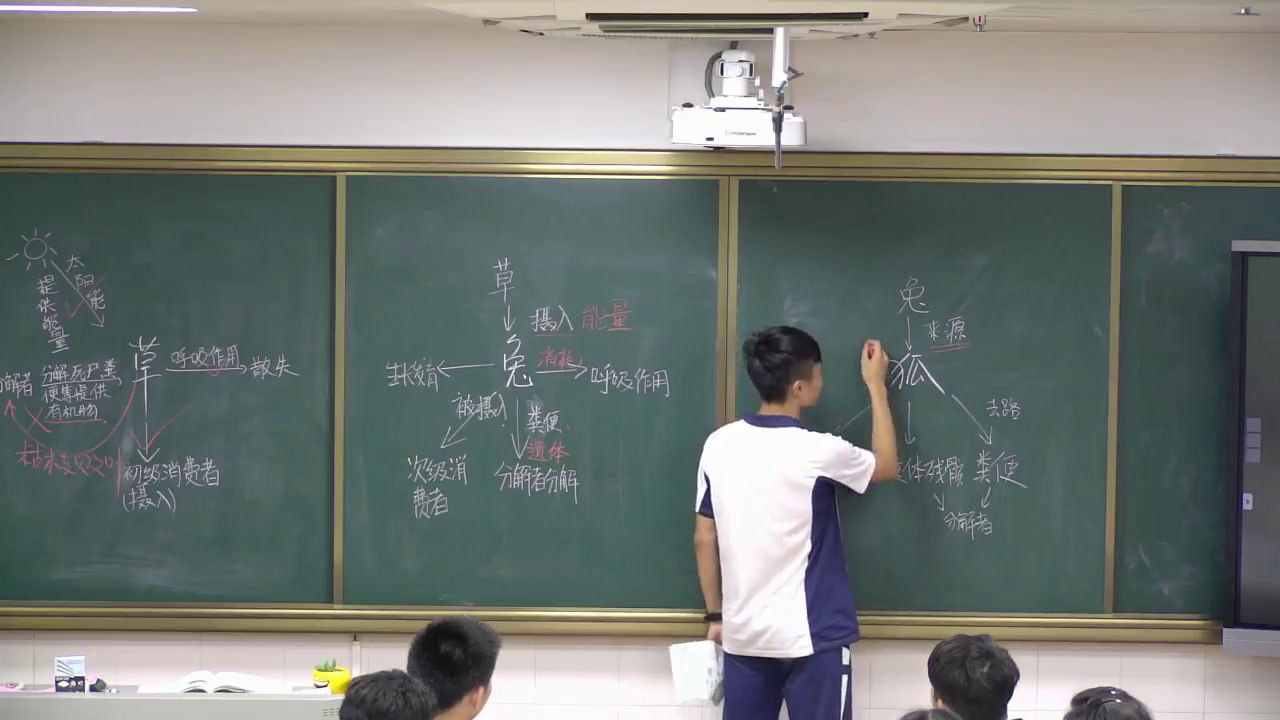 太阳能
提供能量
解者
分解死尸粪
便等提供
有机物
草
呼吸作用
散失
初级消费者
(摄入)
草
摄入 能量
兔
生长发育
消耗
呼吸作用
被摄入
粪便
遗体
次级消
费者
分解者分解
兔
来源
狐
去路
体残骸
粪便
分解者